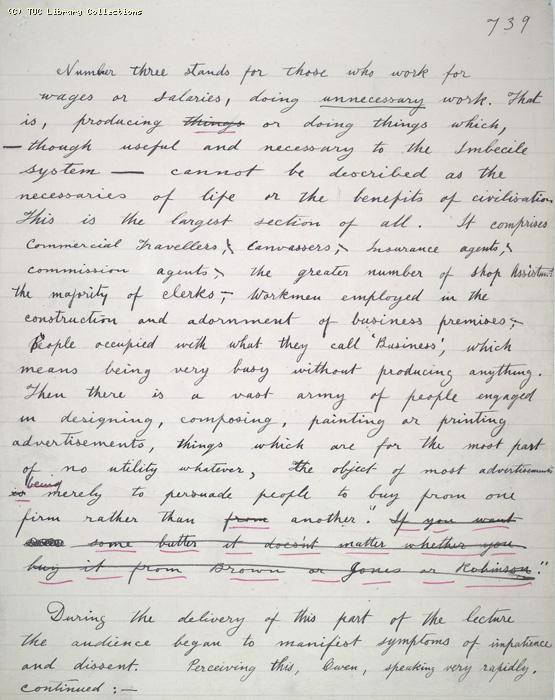 (C) TUC Library Collections
739
Number three stands for those who work for
wages or salaries, doing unnecessary work. That
is, producing things or doing things which,
— though useful and necessary to the Imbecile
System — cannot be described as the
necessaries of life or the benefits of civilisation
This is the largest section of all. It comprises
Commercial Travellers, Canvassers, Insurance agents,
commission agents, the greater number of shop Assistants
the majority of clerks, workmen employed in the
construction and adornment of business premises,
People occupied with what they call 'Business', which
means being very busy without producing anything.
Then there is a vast army of people engaged
in designing, composing, painting or printing
advertisements, things which are for the most part
of no utility whatever, the object of most advertisements
being
is merely to persuade people to buy from one
firm rather than from another." If you want
some butter it doesn't matter whether you
buy it from Brown or Jones or Robinson."
During the delivery of this part of the lecture
the audience began to manifest symptoms of impatience
and dissent. Perceiving this, Owen, speaking very rapidly,
continued :—